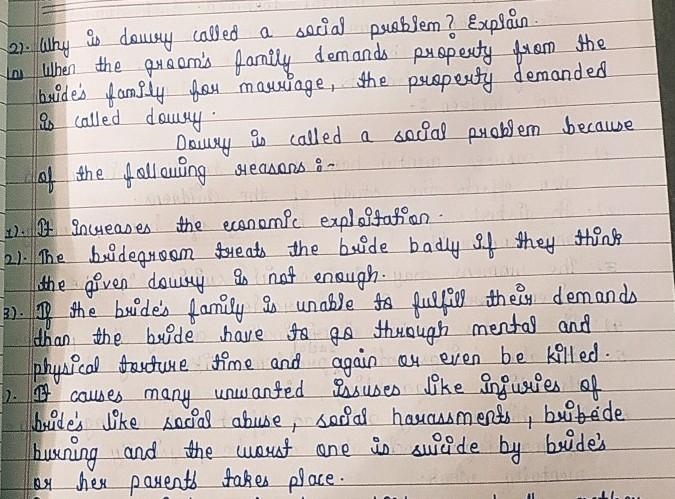 2). Why is dowry called a social problem? Explain.
When the groom's family demands property from the
bride's family for marriage, the property demanded
is called dowry.
Dowry is called a social problem because
of the following reasons :-
1). It increases the economic exploitation.
2). The bridegroom treats the bride badly if they think
the given dowry is not enough.
3). If the bride's family is unable to fulfill their demands
than the bride have to go through mental and
physical torture time and again or even be killed.
). It causes many unwanted issuses like injuries of
bride's like social abuse, social harassments, bribede
burning and the worst one is suicide by bride's
or her parents takes place.